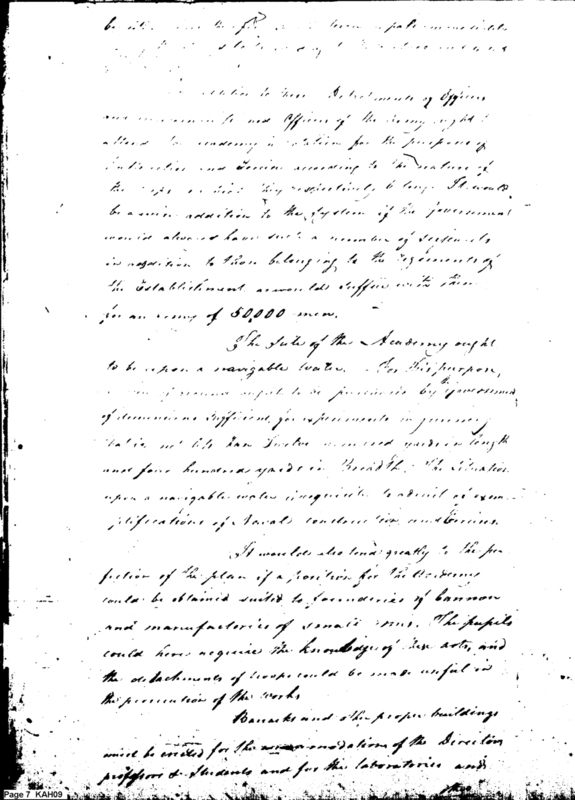 relation to these Detachments of Officers
and non Officers of the army ought to
attend the academy in rotation for the purpose of
Instruction and Service according to the nature of
the corps to which they respectively belong. It would
be a wise addition to the System if the government
would always have such a number of Serjeants
in addition to those belonging to the regiments of
the Establishment as would suffice with them
for an army of 50,000 men.
The Site of the Academy ought
to be upon a navigable Water. For this purpose,
of ground ought to be purchased by the Government
of dimensions sufficient for experiments in gunnery
that is not less than Twelve hundred yards in length
and four hundred yards in Breadth. The Situation
upon a navigable water is requisite to admit of exem
plifications of Naval construction and Exercises.
It would also tend greatly to the per
fection of the plan if a position for the Academy
could be obtained suited to founderies of Cannon
and manufactories of small arms. The pupils
could here acquire the knowledge of these arts, and
the detachments of troops could be made useful in
the prosecution of the works
Barracks and other proper buildings
must be erected for the accommodation of the Directors
professors & Students and for the laboratories and
other
Page 7 KAH09